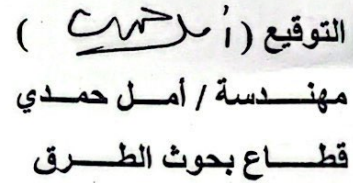 التوقيع ( أمل حمدي )
مهندسة / أمل حمدي
قطاع بحوث الطرق